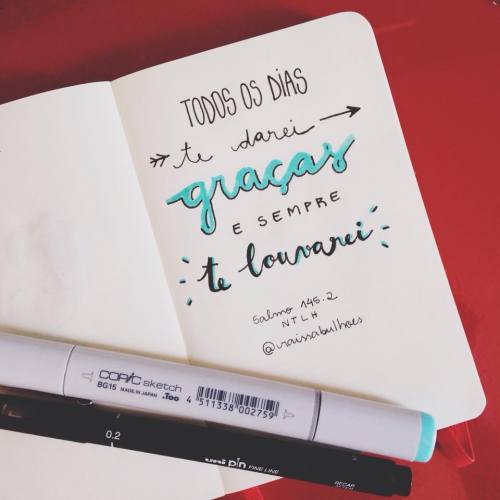 TODOS OS DIAS
te darei
graças
E SEMPRE
te louvarei
Salmo 145.2
NTLH
@raissabulhoes
COPIC sketch
BG15 MADE IN JAPAN .Too
4 511338 002759
0.2
uni pin FINE LINE